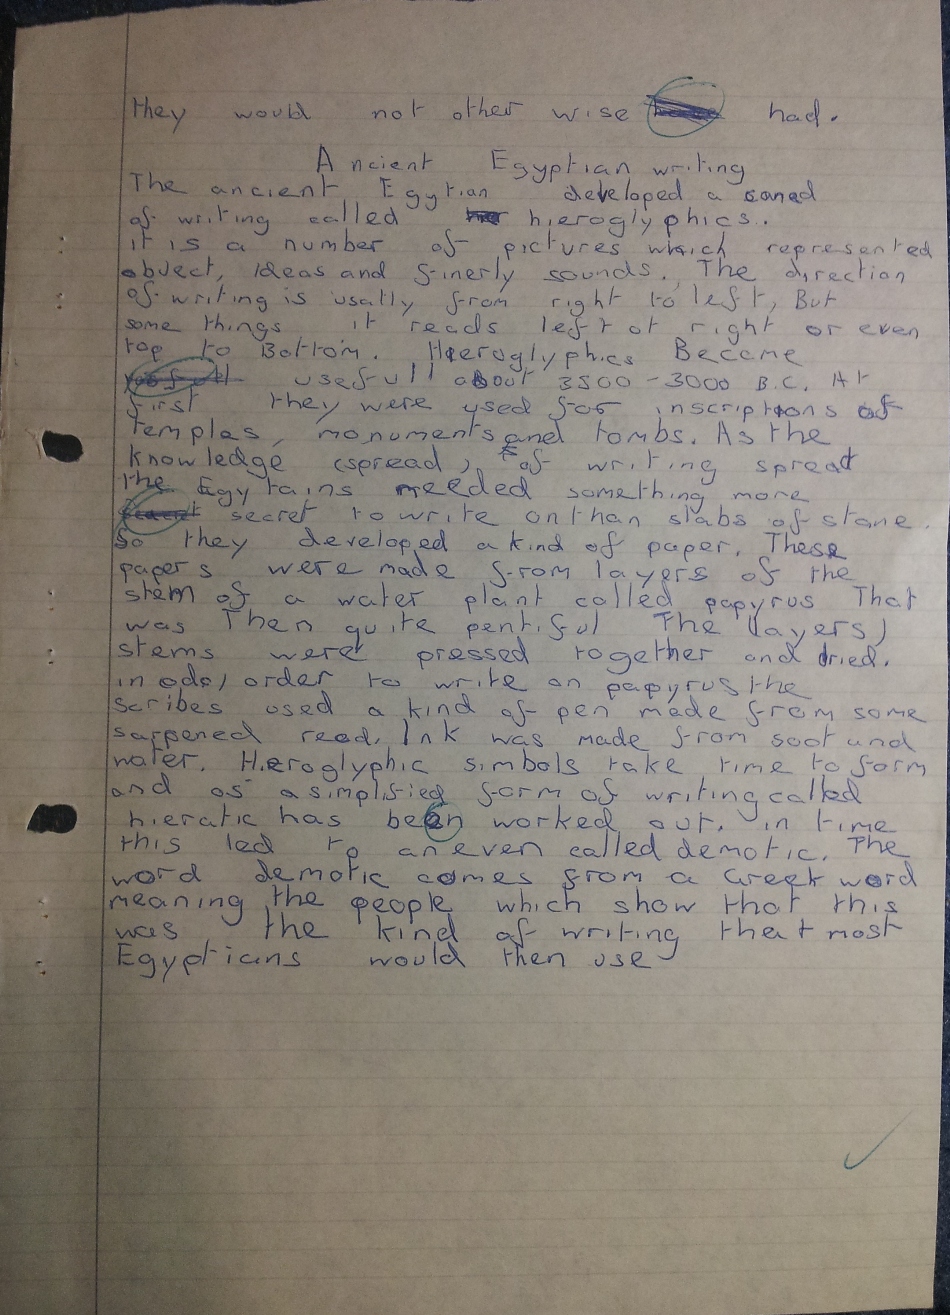 they would not other wise had.
Ancient Egyptian writing
The ancient Egytian developed a
of writing called hieroglyphics..
it is a number of pictures which represented
object, ideas and finerly sounds. The direction
of writing is usally from right to left, But
some things it reads left ot right or even
top to Bottom. Hieroglyphics Became
usefull about 3500-3000 B.C. At
first they were used for inscriptions of
templas, monuments and tombs. As the
knowledge (spread) of writing spread
the Egytains needed something more
secret to write on than slabs of stone.
So they developed a kind of paper. These
papers were made from layers of the
stem of a water plant called papyrus That
was Then quite pentiful The (layers)
stems were pressed together and dried.
in ode) order to write on papyrus the
scribes used a kind of pen made from some
sarpened read. Ink was made from soot and
water. Hieroglyphic simbols take time to form
and as a simplified form of writing called
hieratic has been worked out. in time
this led to an even called demotic. The
word demotic comes from a Greek word
meaning the people which show that this
was the kind of writing that most
Egypticans would then use